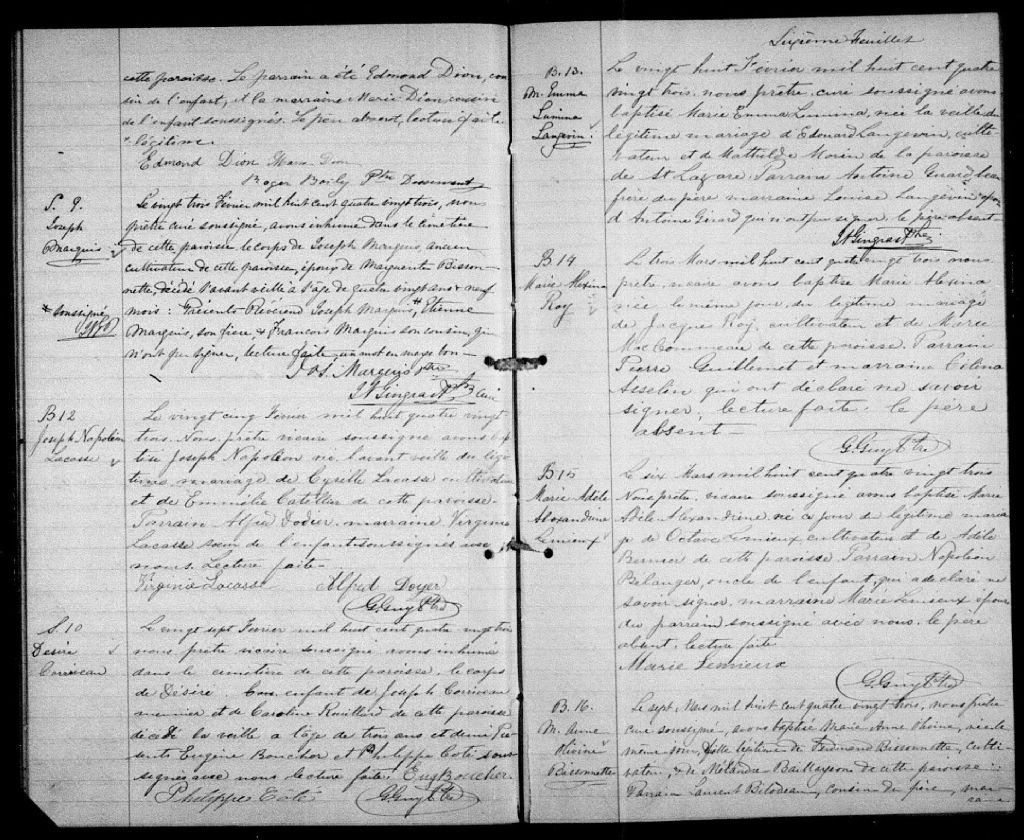 cette paroisse. Le parrain a été Edmond Dion, cou
sin de l'enfant, et la marraine Marie Dion cousine
de l'enfant soussignés. Le père absent, lecture faite
+ légitime
Edmond Dion Marie Dion
Roger Boily Ptre Desservant
S. 9.
Joseph
Marquis
Le vingt trois Février mil huit cent quatre vingt trois, nous
prêtre curé soussigné, avons inhumé dans le cimetière
de cette paroisse le corps de Joseph Marquis, ancien
cultivateur de cette paroisse, époux de Marguerite Bisson-
nette, décédé l'avant veille à l'âge de quatre vingt ans & neuf
* soussigné
mois : Présents Révérend Joseph Marquis,* Etienne
Marquis, son frère & François Marquis son cousin, qui
n'ont pu signer, lecture faite un mot en marge bon —
Jos. Marquis Ptre
Gingras Ptre Curé
B12
Joseph Napoléon
Lacasse
Le vingt cinq Février mil huit quatre vingt
trois. Nous prêtre vicaire soussigné avons bap
tisé Joseph Napoléon né l'avant veille du légi
time mariage de Cyrille Lacasse cultivateur
et de Emmilie Catellier de cette paroisse.
Parrain Alfred Dodier, marraine Virginie
Lacasse sœur de l'enfant soussignés avec
nous. Lecture faite —
Virginie Lacasse Alfred Doyer
G. Guy Ptre
S. 10
Désiré
Corriveau
Le vingt sept Février mil huit cent quatre vingt trois
nous prêtre vicaire soussigné avons inhumé
dans le cimetière de cette paroisse le corps
de Désiré enfant de Joseph Corriveau
meunier et de Caroline Rouillard de cette paroisse
décédé la veille à l'âge de trois ans et demi Pré
sents Eugène Boucher et Philippe Coté sous-
signés avec nous lecture faite. Eug Boucher
Philippe Coté G. Guy Ptre
Sixième Feuillet
B. 13.
M. Emma
Lumina
Langevin.
Le vingt huit Février mil huit cent quatre
vingt trois, nous prêtre, curé soussigné avons
baptisé Marie Emma Lumina, née la veille du
légitime mariage d'Edouard Langevin, culti-
vateur et de Mathilde Morin de la paroisse
de St Lazare. Parrain Antoine Girard beau
frère du père marraine Louise Langevin épouse
d'Antoine Girard qui n'ont pu signer, le père absent —
Gingras Ptre
B14
Marie Alexina
Roy
Le trois Mars mil huit cent quatre vingt trois nous
prêtre vicaire avons baptisé Marie Alexina
née le même jour du légitime mariage
de Jacques Roy, cultivateur et de Marie
de cette paroisse. Parrain
Pierre Guillemet et marraine Célena
Asselin qui ont déclaré ne savoir
signer, lecture faite. le père
absent —
G. Guy Ptre
B15
Marie Adèle
Alexandrine
Lemieux
Le six Mars mil huit cent quatre vingt trois
Nous prêtre, vicaire soussigné avons baptisé Marie
Adèle Alexandrine, née ce jour du légitime maria
ge de Octave Lemieux cultivateur et de Adèle
Bernier de cette paroisse Parrain Napoléon
Bélanger, oncle de l'enfant, qui a déclaré ne
savoir signer, marraine Marie Lemieux épouse
du parrain soussigné avec nous. le père
absent, lecture faite
Marie Lemieux
G. Guy Ptre
B. 16.
M. Anne
Olivine
Bissonnette
Le sept Mars mil huit cent quatre vingt trois, nous prêtre
curé soussigné, avons baptisé Marie Anne Olivine, née le
même jour, fille légitime de Ferdinand Bissonnette, culti-
vateur, & de Mélandre Baillargeon de cette paroisse :
Parrain Laurent Bilodeau, cousin du père, mar-
raine